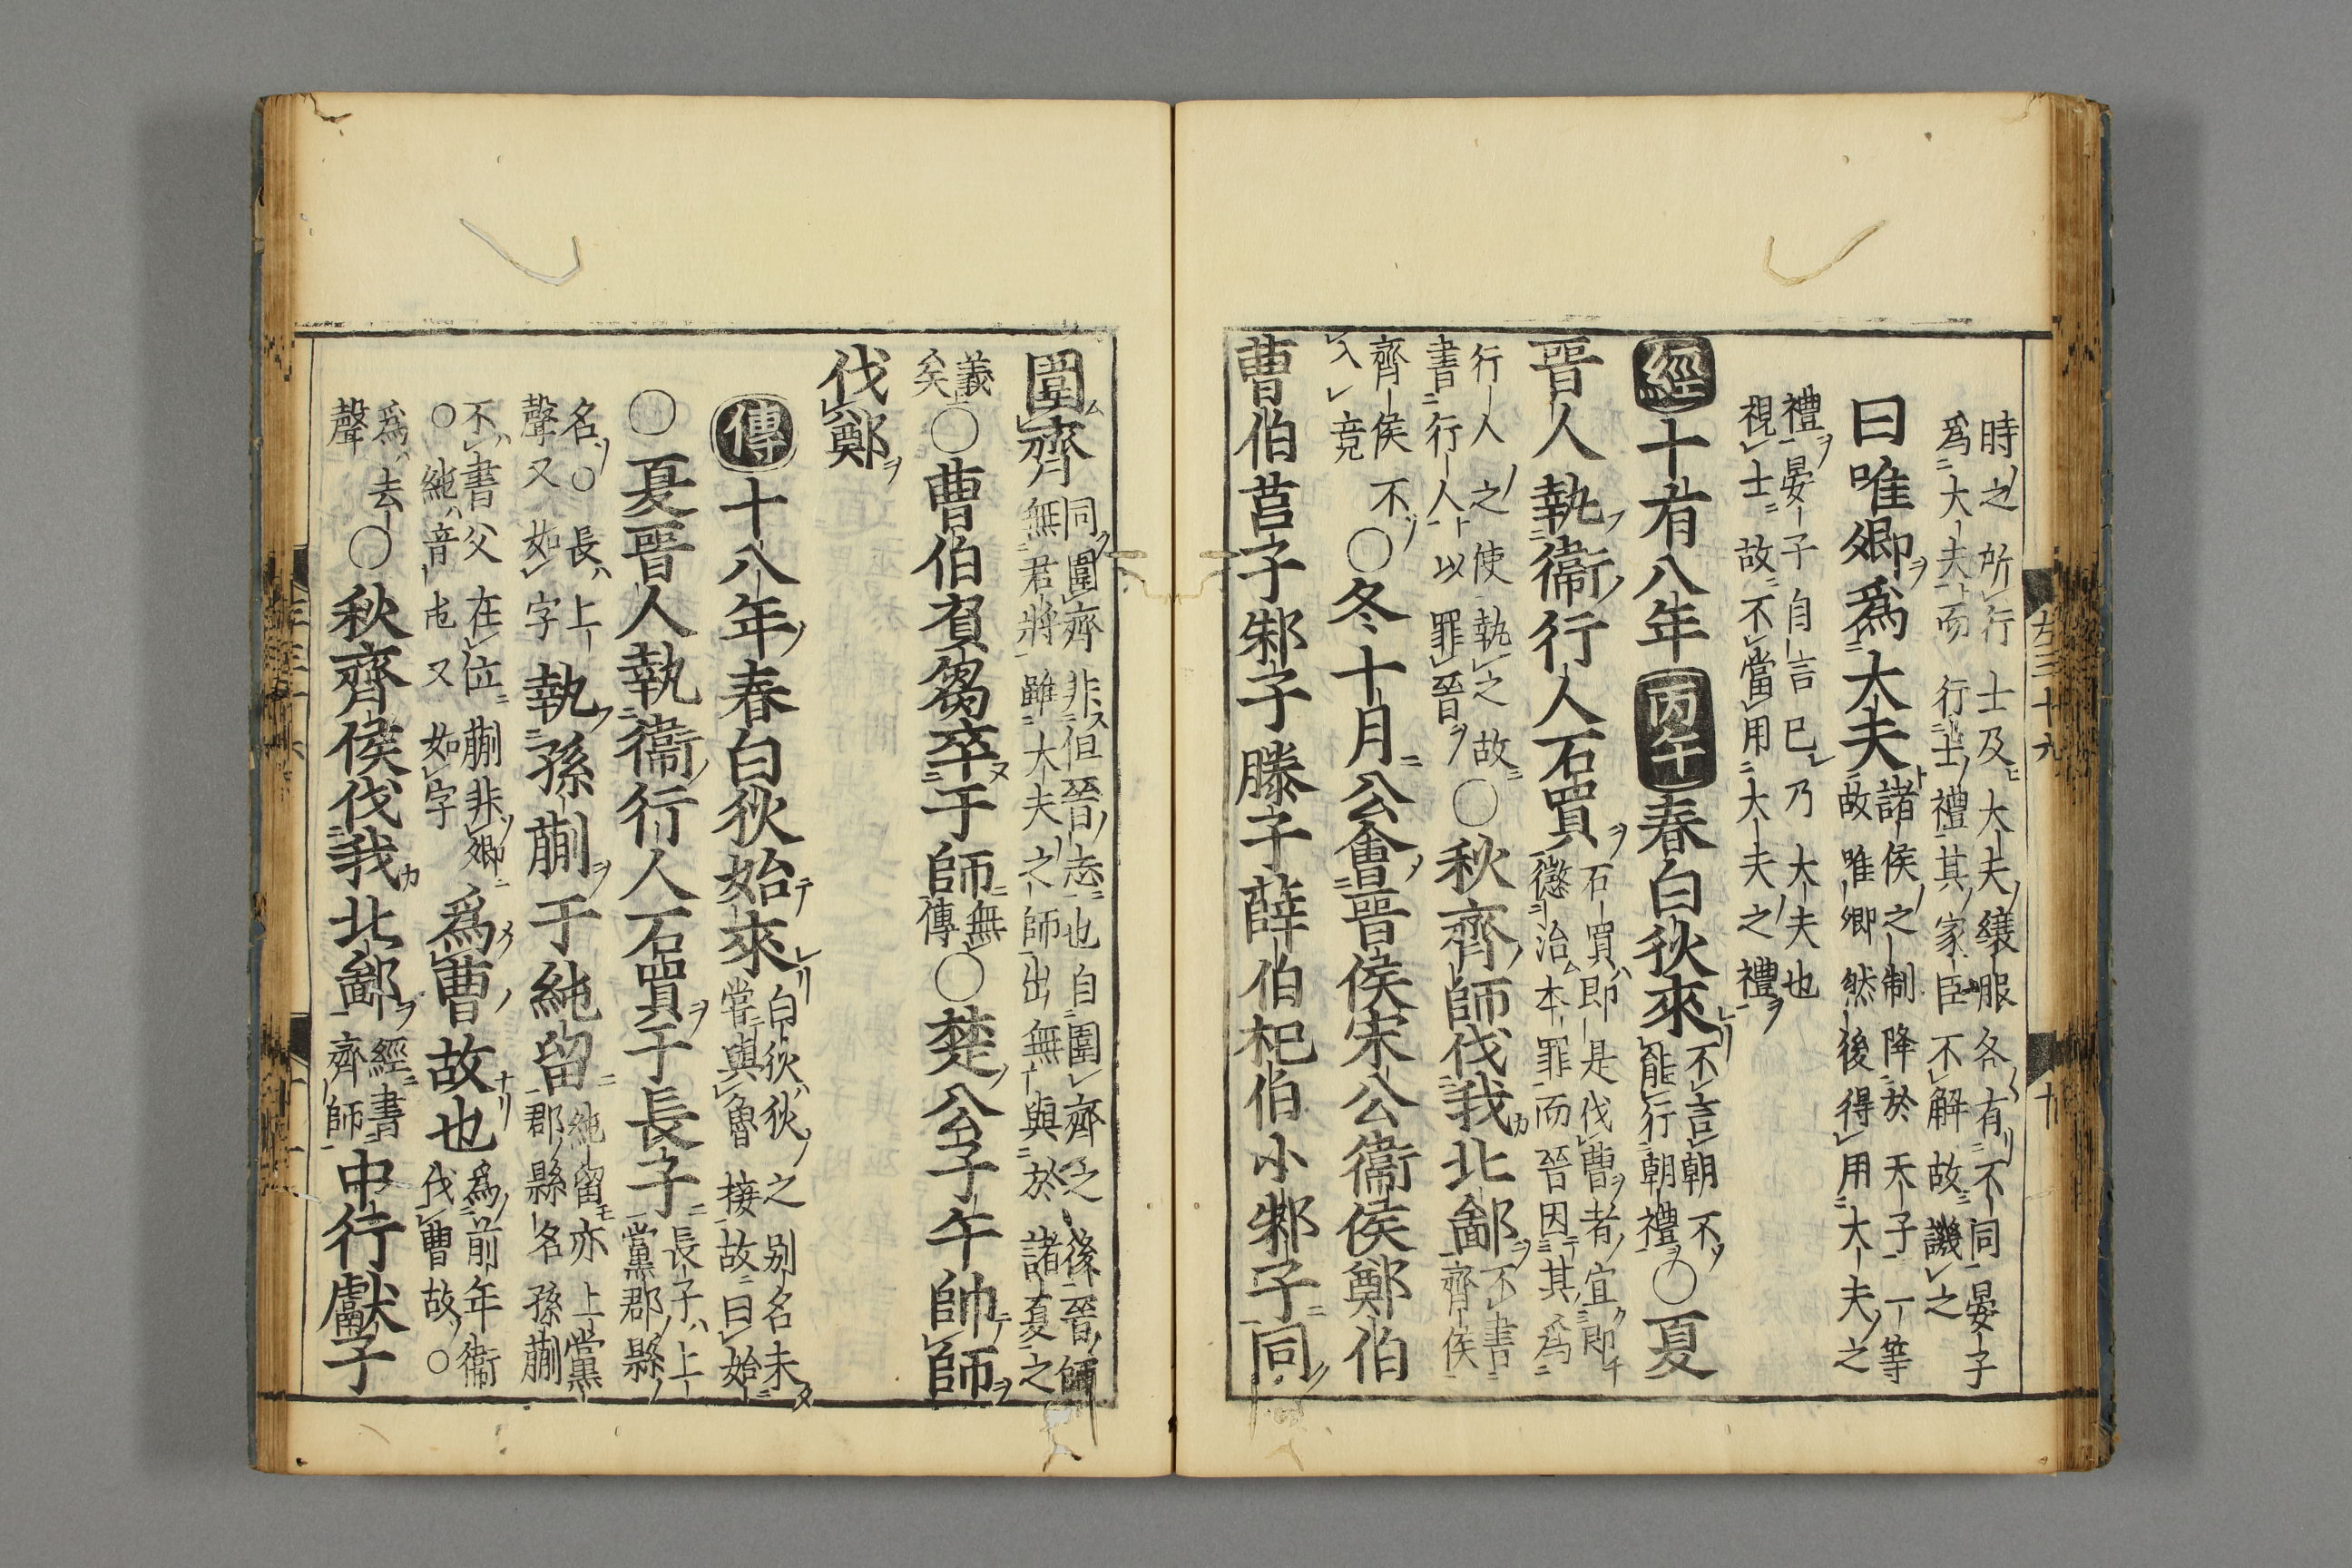 時之所行士及大夫縗服各有不同晏子
爲大夫而行士禮其家臣不解故譏之
曰唯卿爲大夫
諸侯之制降於天子一等
故唯卿然後得用大夫之
禮晏子自言已乃大夫也
視士故不當用大夫之禮
經十有八年丙午春白狄來
不言朝不
能行朝禮
○夏
晉人執衞行人石買
石買即是伐曹者宜即
懲治本罪而晉因其爲
行人之使執之故
書行人以罪晉
○秋齊師伐我北鄙
不書
齊侯
齊侯不
入竟
○冬十月公會晉侯宋公衞侯鄭伯
曹伯莒子邾子滕子薛伯杞伯小邾子同
圍齊
同圍齊非但晉志也自圍齊之後晉師
無君將雖大夫之師出無與於諸夏之
義
矣
○曹伯負芻卒于師
無
傳
○楚公子午帥師
伐鄭
傳十八年春白狄始來
白狄狄之别名未
嘗與魯接故曰始
○夏晉人執衞行人石買于長子
長子上
黨郡縣
名○長上
聲又如字
執孫蒯于純留
純留亦上黨
郡縣名孫蒯
不書父在位蒯非卿
○純音屯又如字
爲曹故也
爲前年衞
伐曹故○
爲去
聲
○秋齊侯伐我北鄙
經書
齊師
中行獻子
左三十九
十